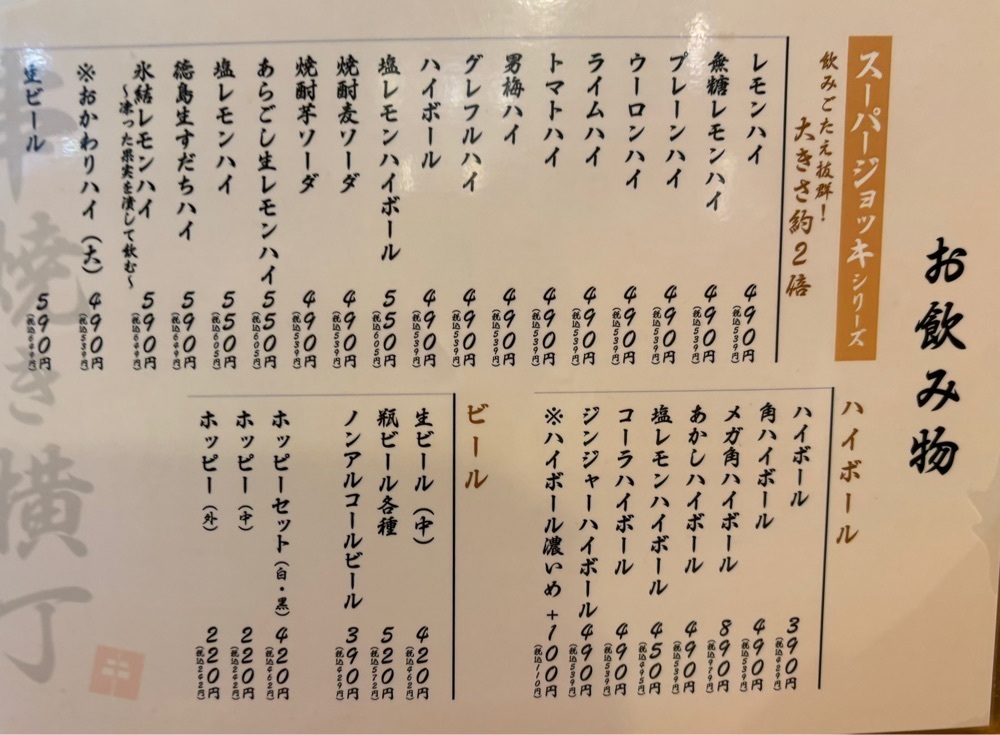 お飲み物
スーパージョッキシリーズ
飲みごたえ抜群！
大きさ約2倍
レモンハイ 490円（税込539円）
無糖レモンハイ 490円（税込539円）
プレーンハイ 490円（税込539円）
ウーロンハイ 490円（税込539円）
ライムハイ 490円（税込539円）
トマトハイ 490円（税込539円）
男梅ハイ 490円（税込539円）
グレフルハイ 490円（税込539円）
ハイボール 490円（税込539円）
塩レモンハイボール 550円（税込605円）
焼酎麦ソーダ 490円（税込539円）
焼酎芋ソーダ 490円（税込539円）
あらごし生レモンハイ 550円（税込605円）
塩レモンハイ 550円（税込605円）
徳島生すだちハイ 590円（税込649円）
氷結レモンハイ 590円（税込649円）
〜凍った果実を潰して飲む〜
※おかわりハイ（大） 490円（税込539円）
生ビール 590円（税込649円）
ハイボール
ハイボール 390円（税込429円）
角ハイボール 490円（税込539円）
メガ角ハイボール 890円（税込979円）
あかしハイボール 490円（税込539円）
塩レモンハイボール 450円（税込495円）
コーラハイボール 490円（税込539円）
ジンジャーハイボール 490円（税込539円）
※ハイボール濃いめ +100円（税込110円）
ビール
生ビール（中） 420円（税込462円）
瓶ビール各種 520円（税込572円）
ノンアルコールビール 390円（税込429円）
ホッピーセット（白・黒） 420円（税込462円）
ホッピー（中） 220円（税込242円）
ホッピー（外） 220円（税込242円）
串焼き横丁
串